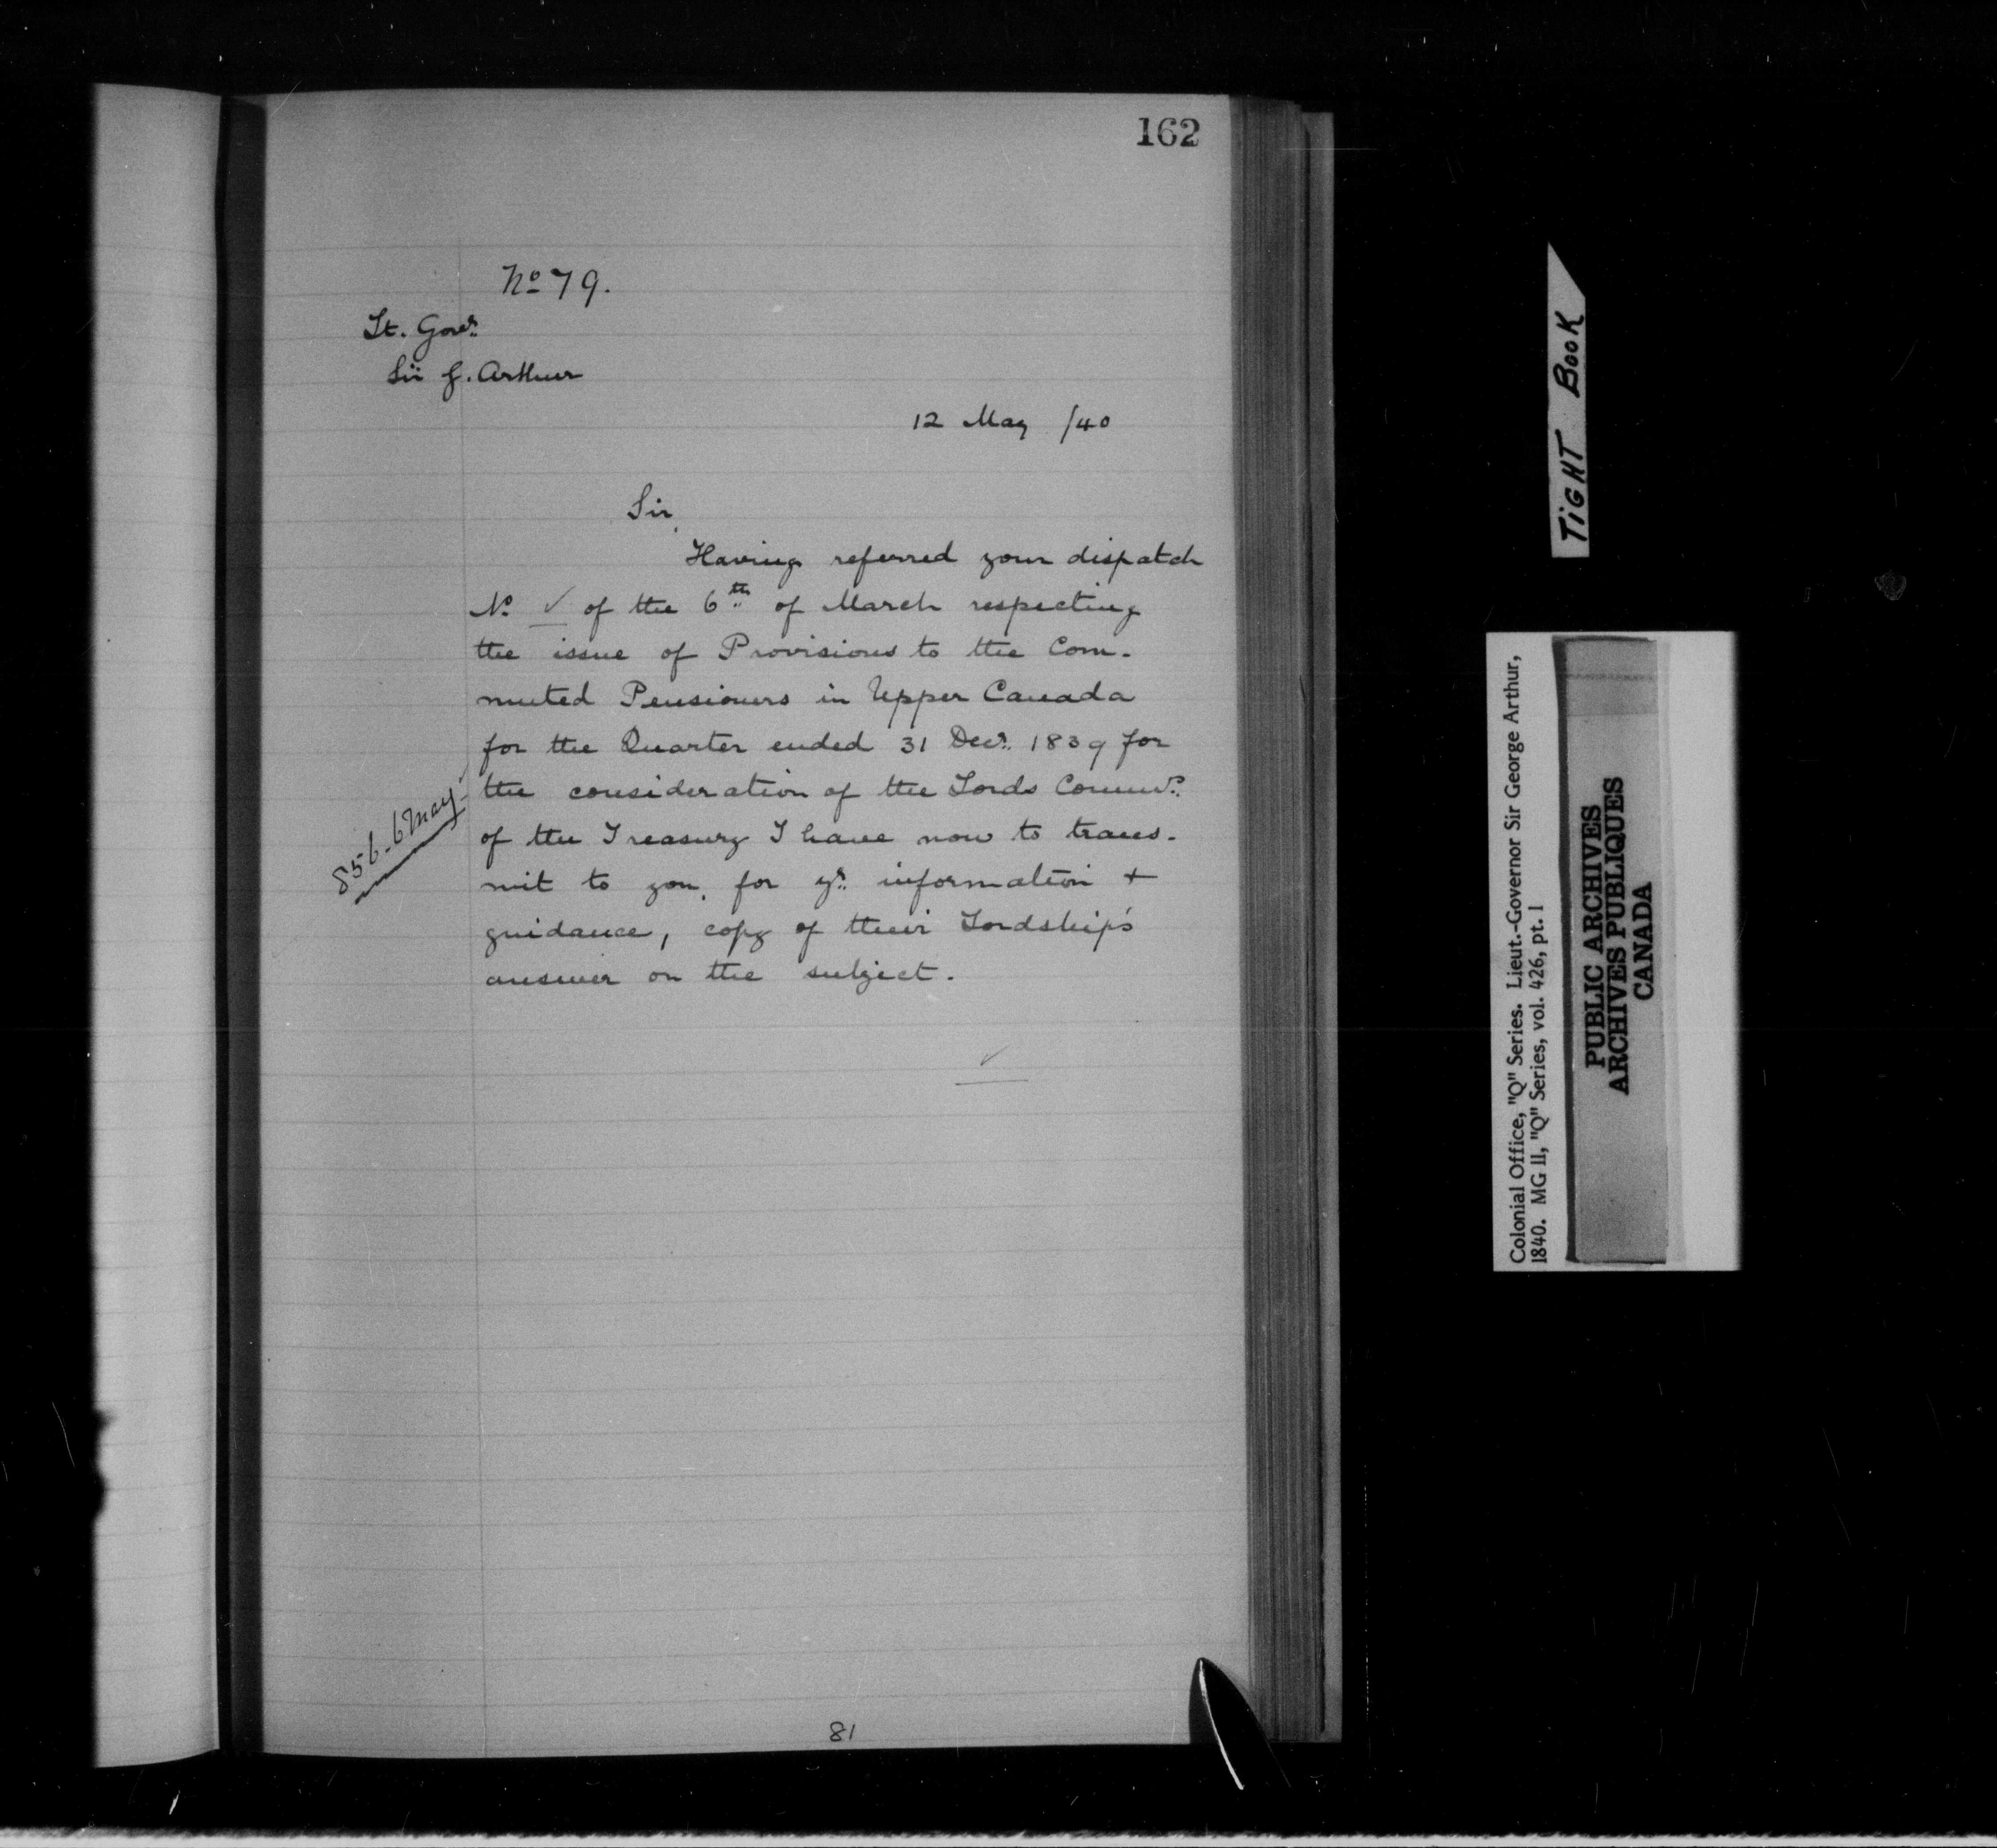 162
No 79.
Lt. Govr.
Sir G. Arthur
12 May /40
Sir,
Having referred your dispatch
No ✓ of the 6th of March respecting
the issue of Provisions to the Com-
muted Pensioners in Upper Canada
for the Quarter ended 31 Decr. 1839 for
the consideration of the Lords Commrs.
of the Treasury I have now to trans-
mit to you, for yr. information +
guidance, copy of their Lordship's
answer on the subject.
✓
856-6 May
81
TIGHT BOOK
Colonial Office, "Q" Series. Lieut.-Governor Sir George Arthur,
1840. MG 11, "Q" Series, vol. 426, pt. 1
PUBLIC ARCHIVES
ARCHIVES PUBLIQUES
CANADA